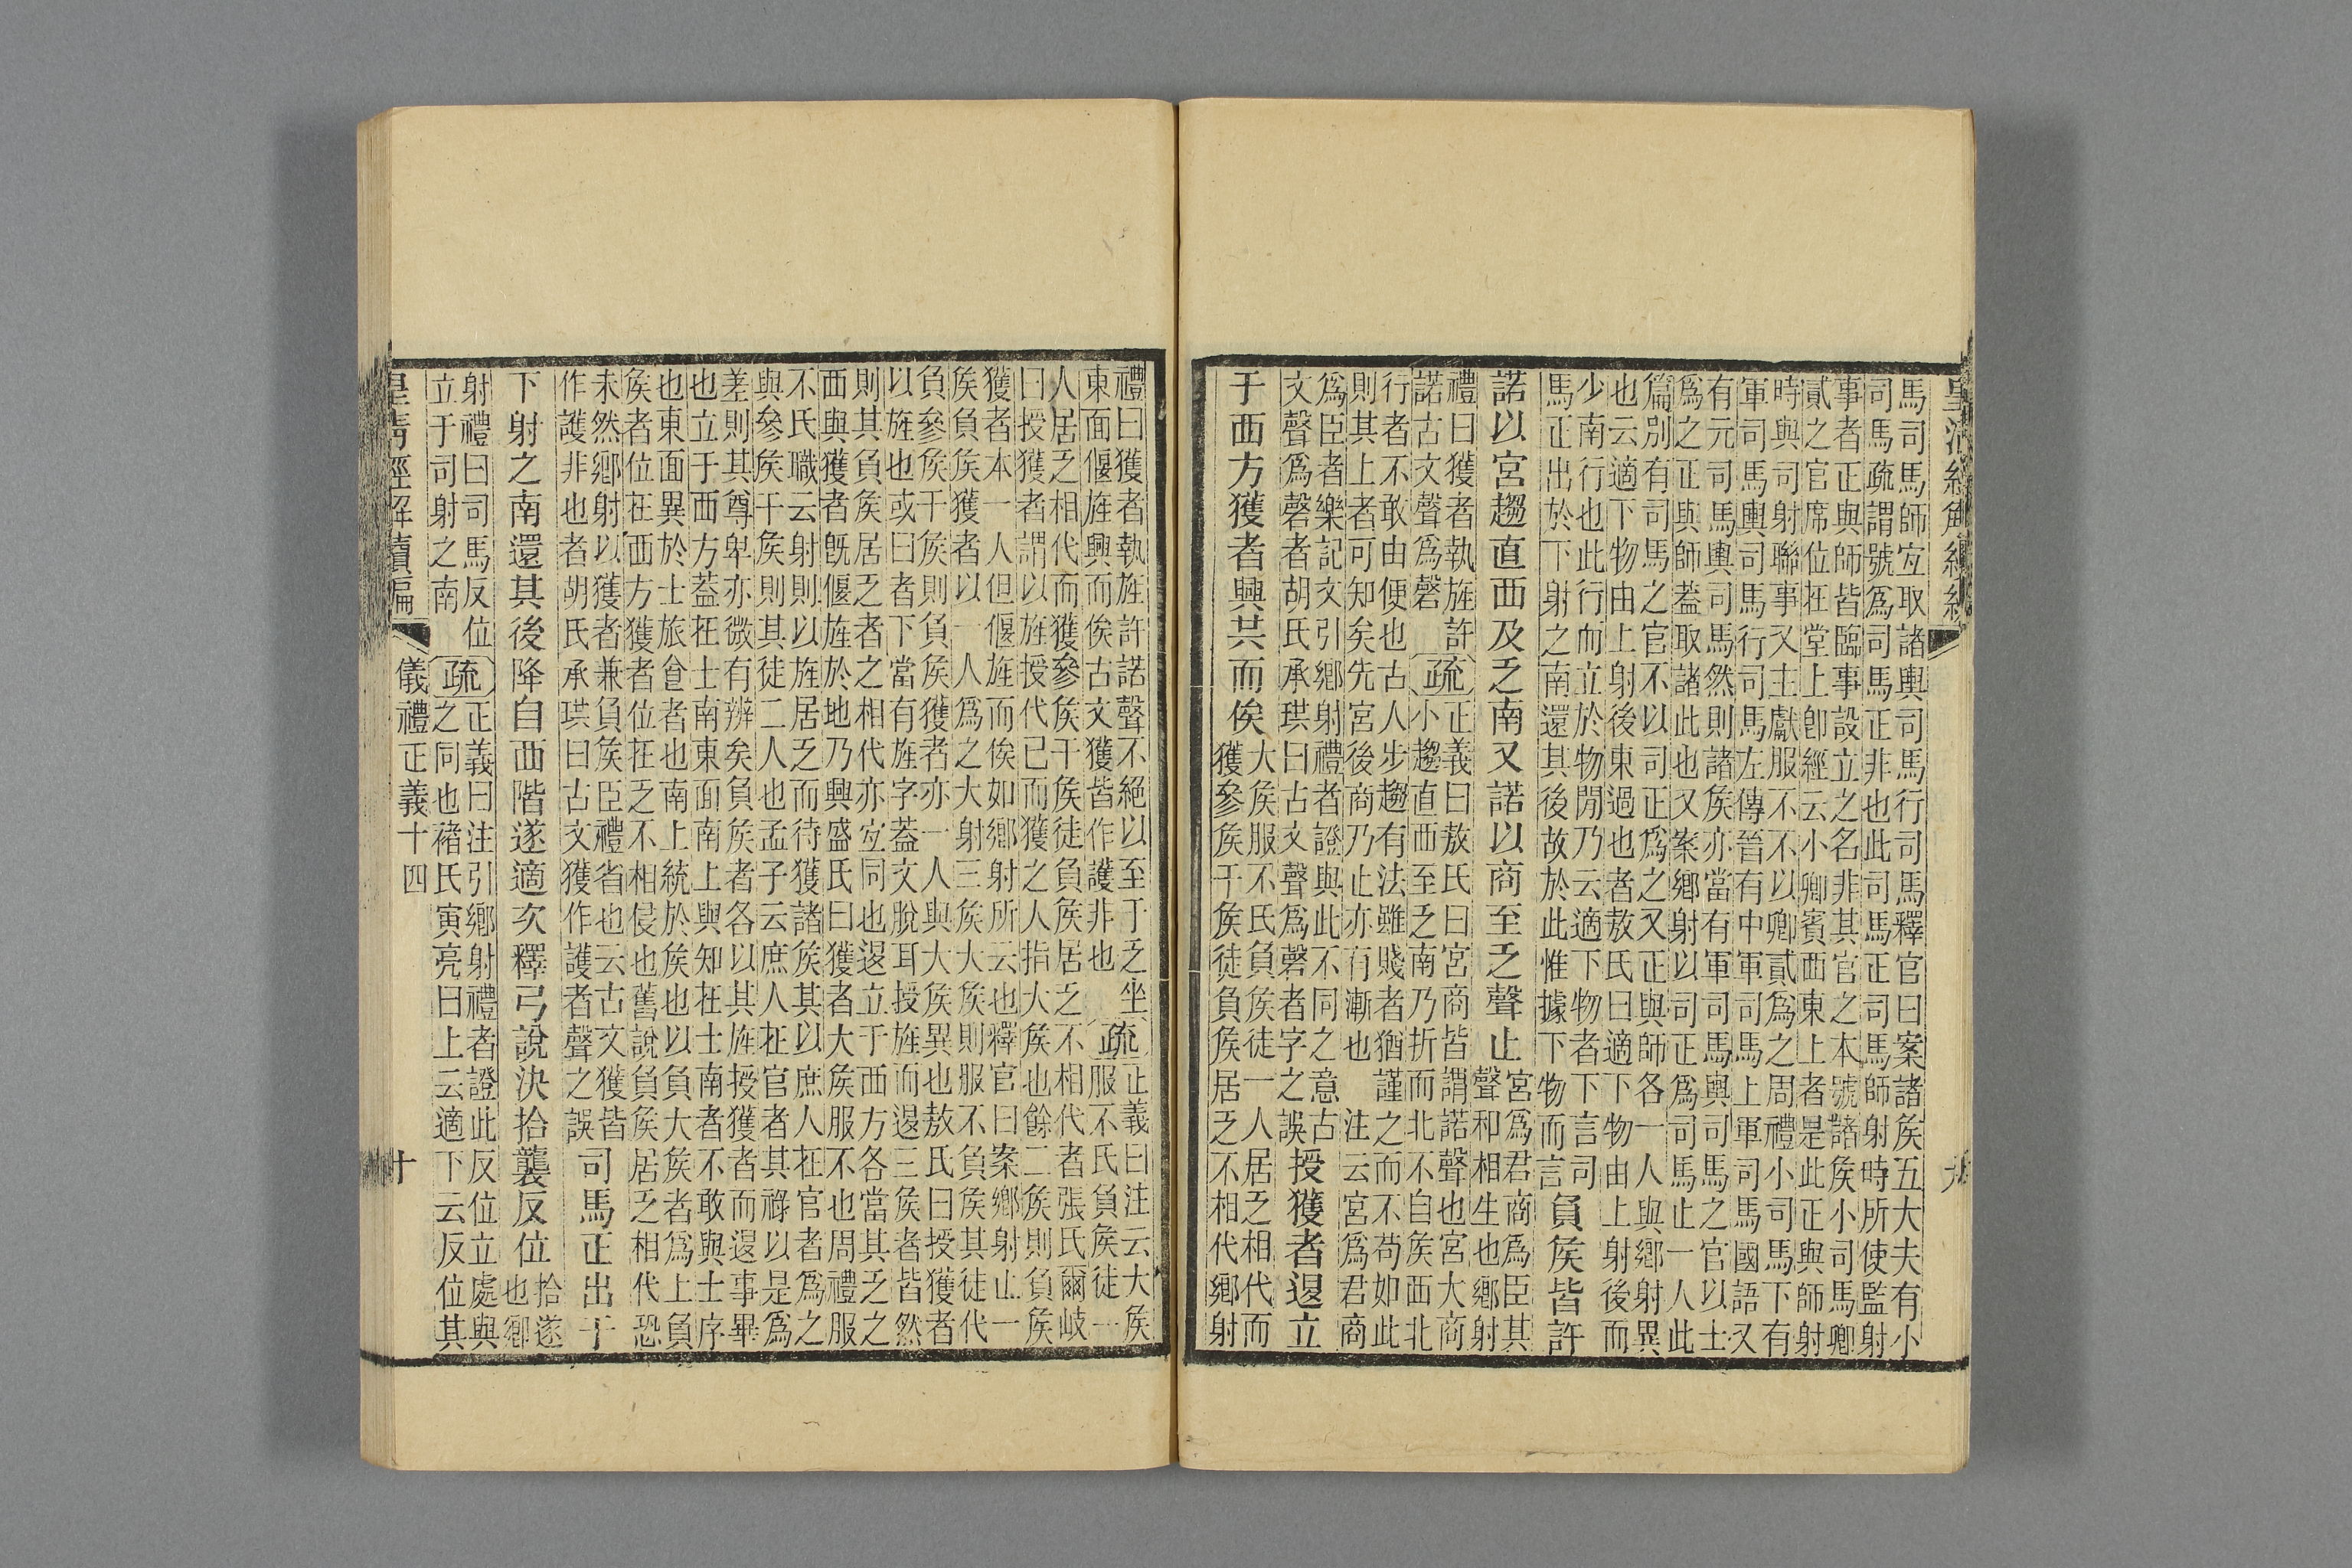 馬司馬師宐取諸輿司馬行司馬釋官曰案諸矦五大夫有小
司馬疏謂號爲司馬正非也此司馬正司馬師射時所使監射
事者正與師皆臨事設立之名非其官之本號諸矦小司馬卿
貳之官席位在堂上卽經云小卿賓西東上者是此正與師射
時與司射聯事又主獻服不不以卿貳爲之周禮小司馬下有
軍司馬輿司馬行司馬左傳晉有中軍司馬上軍司馬國語又
有元司馬輿司馬然則諸矦亦當有軍司馬輿司馬之官以士
爲之正與師蓋取諸此也又案鄉射以司正爲司馬止一人此
篇別有司馬之官不以司正爲之又正與師各一人與鄉射異
也云適下物由上射後東過也者敖氏曰適下物由上射後而
少南行也此行而立於物閒乃云適下物者下言司
馬正出於下射之南還其後故於此惟據下物而言
負矦皆許
諾以宮趨直西及乏南又諾以商至乏聲止
宮爲君商爲臣其
聲和相生也鄉射
禮曰獲者執旌許
諾古文聲爲磬
疏
正義曰敖氏曰宮商皆謂諾聲也宮大商
小趨直西至乏南乃折而北不自矦西北
行者不敢由便也古人步趨有法雖賤者猶謹之而不苟如此
則其上者可知矣先宮後商乃止亦有漸也 注云宮爲君商
爲臣者樂記文引鄉射禮者證與此不同之意古
文聲爲磬者胡氏承珙曰古文聲爲磬者字之誤
授獲者退立
于西方獲者興共而俟
大矦服不氏負矦徒一人居乏相代而
獲參矦干矦徒負矦居乏不相代鄉射
禮曰獲者執旌許諾聲不絕以至于乏坐
東面偃旌興而俟古文獲皆作護非也
疏
正義曰注云大矦
服不氏負矦徒一
人居乏相代而獲參矦干矦徒負矦居乏不相代者張氏爾岐
曰授獲者謂以旌授代已而獲之人指大矦也餘二矦則負矦
獲者本一人但偃旌而俟如鄉射所云也釋官曰案鄉射止一
矦負矦獲者以一人爲之大射三矦大矦則服不負矦其徒代
負參矦干矦則負矦獲者亦一人與大矦異也敖氏曰授獲者
以旌也或曰者下當有旌字蓋文脫耳授旌而退三矦者皆然
則其負矦居乏者之相代亦宐同也退立于西方各當其乏之
西與獲者旣偃旌於地乃興盛氏曰獲者大矦服不也周禮服
不氏職云射則以旌居乏而待獲諸矦其以庶人在官者爲之
與參矦干矦則其徒二人也孟子云庶人在官者其祿以是爲
差則其尊卑亦微有辨矣負矦者各以其旌授獲者而退事畢
也立于西方蓋在士南東面南上與知在士南者不敢與士序
也東面異於士旅食者也南上統於矦也以負大矦者爲上負
矦者位在西方獲者位在乏不相侵也舊說負矦居乏相代恐
未然鄉射以獲者兼負矦臣禮省也云古文獲皆
作護非也者胡氏承珙曰古文獲作護者聲之誤
司馬正出于
下射之南還其後降自西階遂適次釋弓說決拾襲反位
拾遂
也鄉
射禮曰司馬反位
立于司射之南
疏
正義曰注引鄉射禮者證此反位立處與
之同也褚氏寅亮曰上云適下云反位其
皇清經解續編
儀禮正義十四
十